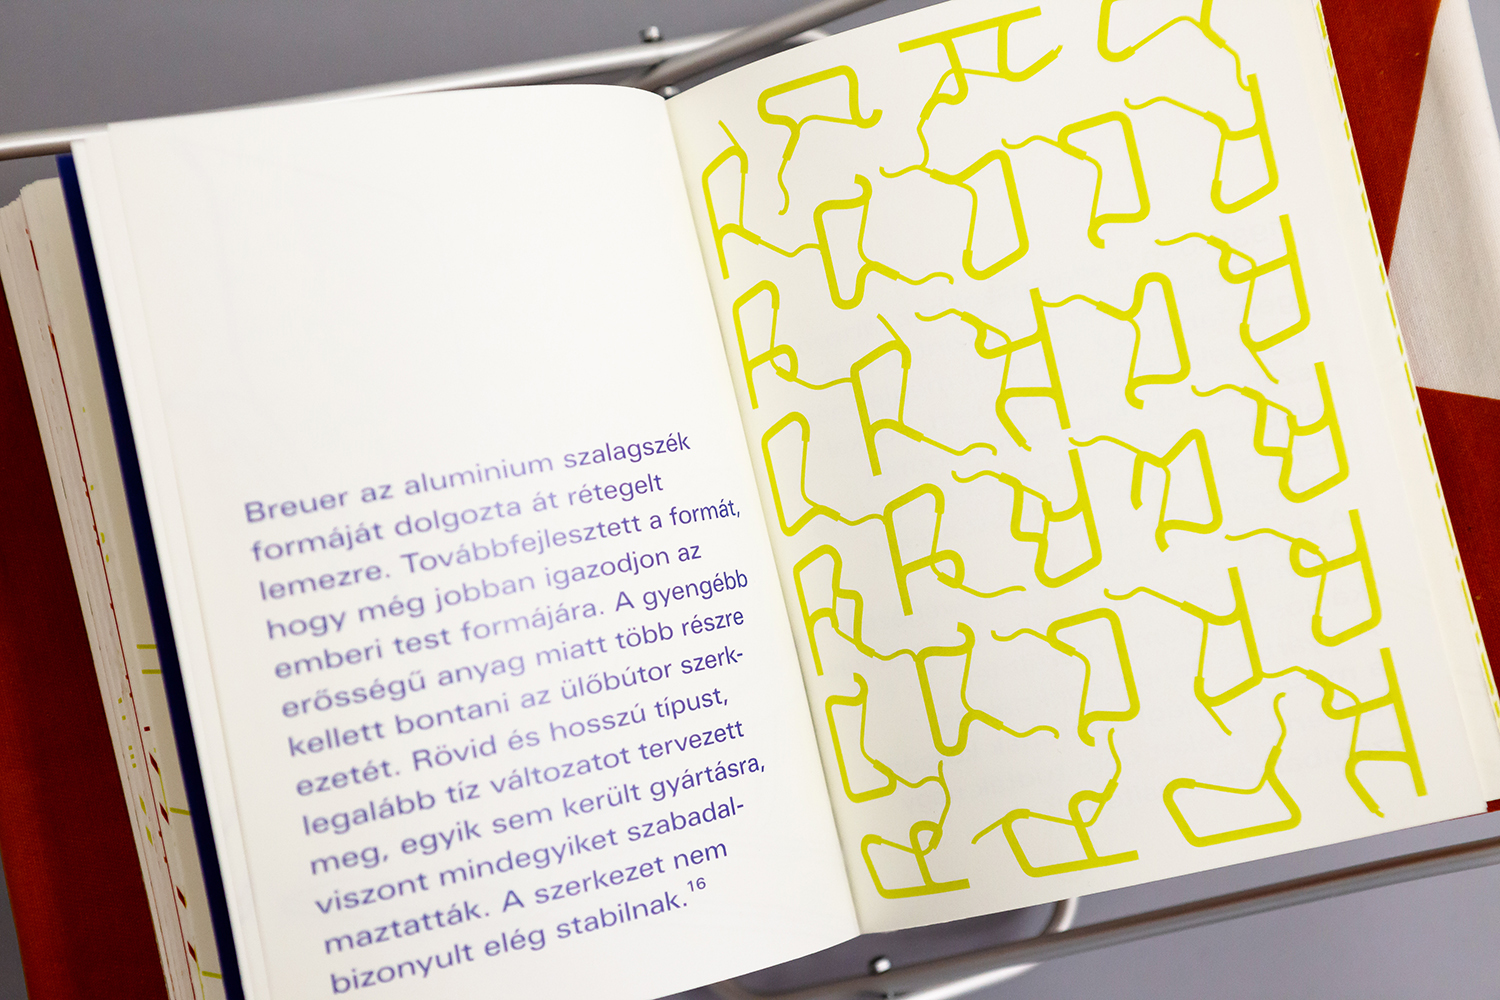 Breuer az aluminium szalagszék
formáját dolgozta át rétegelt
lemezre. Továbbfejlesztett a formát,
hogy még jobban igazodjon az
emberi test formájára. A gyengébb
erősségű anyag miatt több részre
kellett bontani az ülőbútor szerk-
ezetét. Rövid és hosszú típust,
legalább tíz változatot tervezett
meg, egyik sem került gyártásra,
viszont mindegyiket szabadal-
maztatták. A szerkezet nem
bizonyult elég stabilnak.16